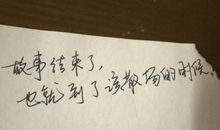 故事结束了,
也就到了该散场的时候,